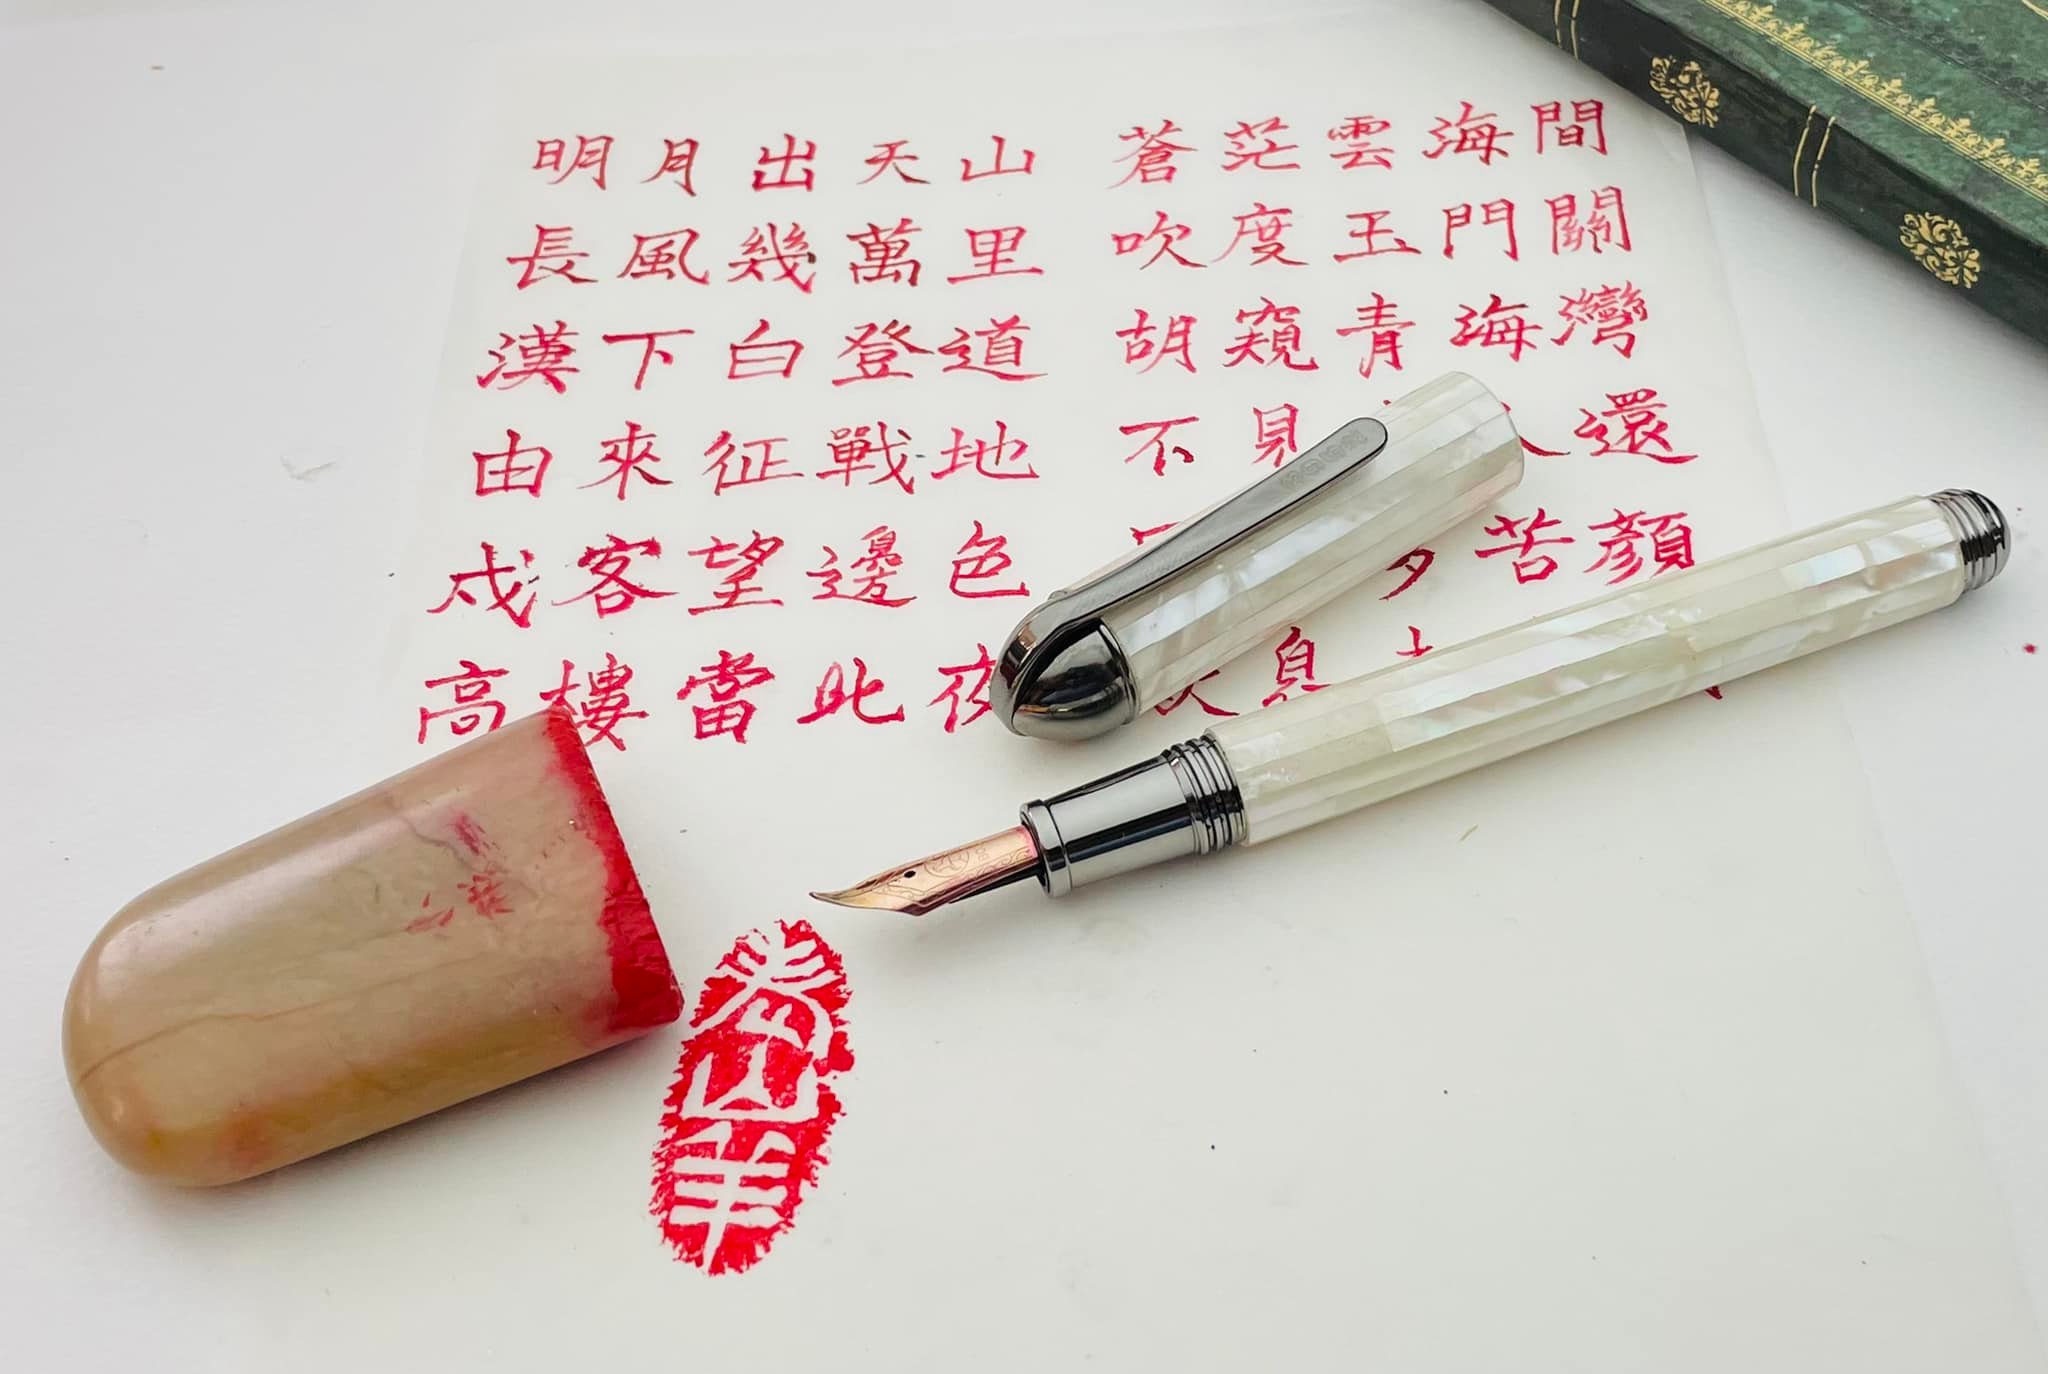 明月出天山 蒼茫雲海間
長風幾萬里 吹度玉門關
漢下白登道 胡窺青海灣
由來征戰地 不見 還
戍客望邊色 苦顏
高樓當此夜 息
山羊